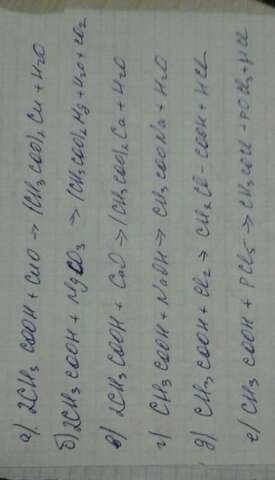 а) 2CH₃COOH + CuO → (CH₃COO)₂Cu + H₂O
б) 2CH₃COOH + MgCO₃ → (CH₃COO)₂Mg + H₂O + CO₂
в) 2CH₃COOH + CaO → (CH₃COO)₂Ca + H₂O
г) CH₃COOH + NaOH → CH₃COONa + H₂O
д) CH₃COOH + Cl₂ → CH₂Cl-COOH + HCl
е) CH₃COOH + PCl₅ → CH₃COCl + POCl₃ + HCl